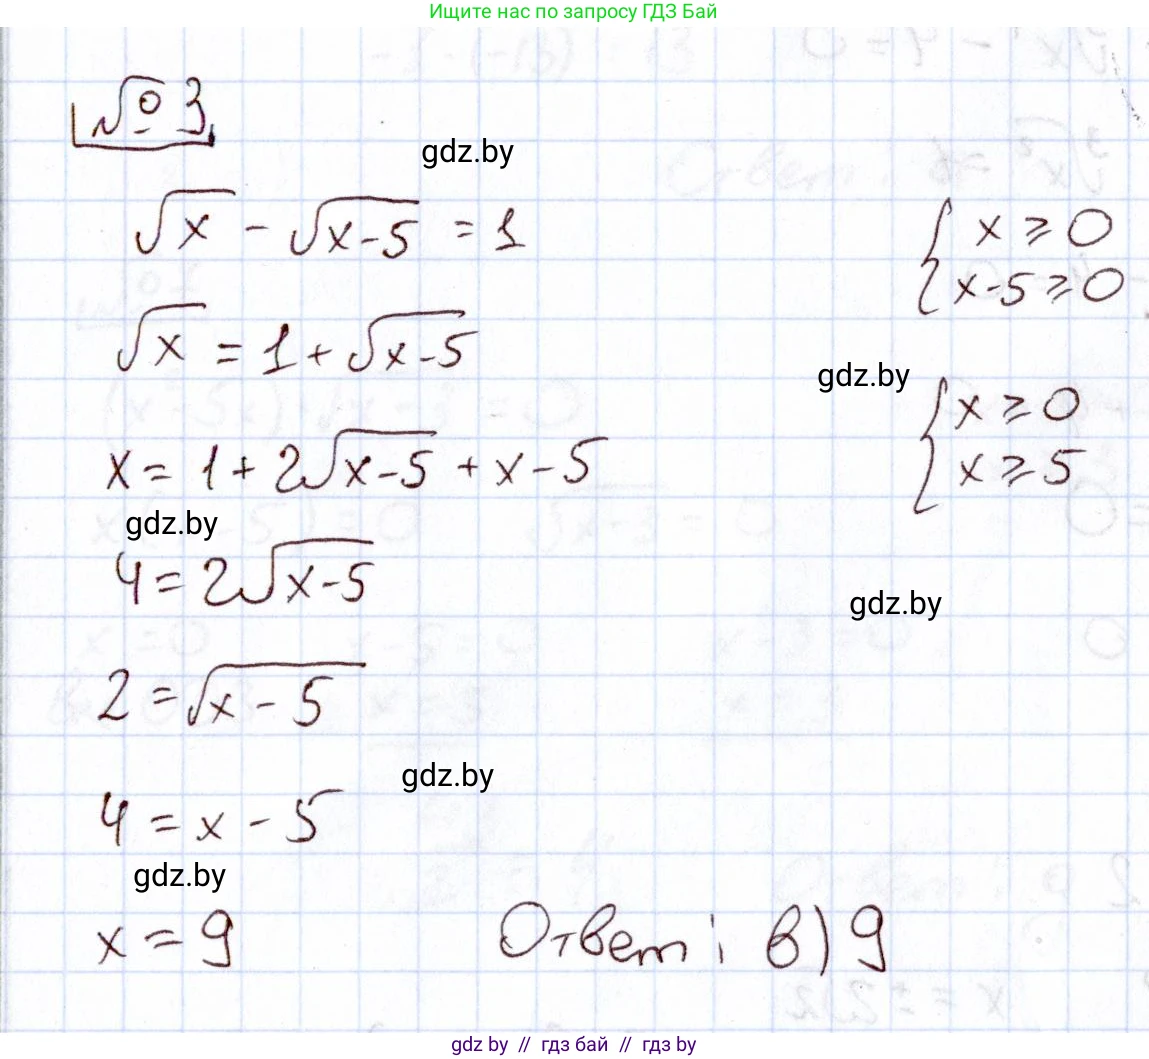 Ищите нас по запросу ГДЗ Бай
№ 3
gdz.by
√x - √(x-5) = 1
{ x ≥ 0
x-5 ≥ 0
√x = 1 + √(x-5)
gdz.by
{ x ≥ 0
x ≥ 5
x = 1 + 2√(x-5) + x - 5
gdz.by
4 = 2√(x-5)
gdz.by
2 = √(x - 5)
gdz.by
4 = x - 5
gdz.by
x = 9
Ответ: в) 9
gdz by // гдз бай // гдз by